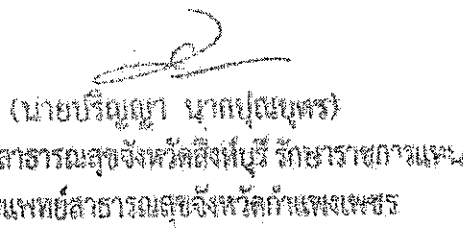 (นายปริญญา นาคปุณบุตร)
สาธารณสุขจังหวัดสิงห์บุรี รักษาราชการแทน
แพทย์สาธารณสุขจังหวัดกำแพงเพชร